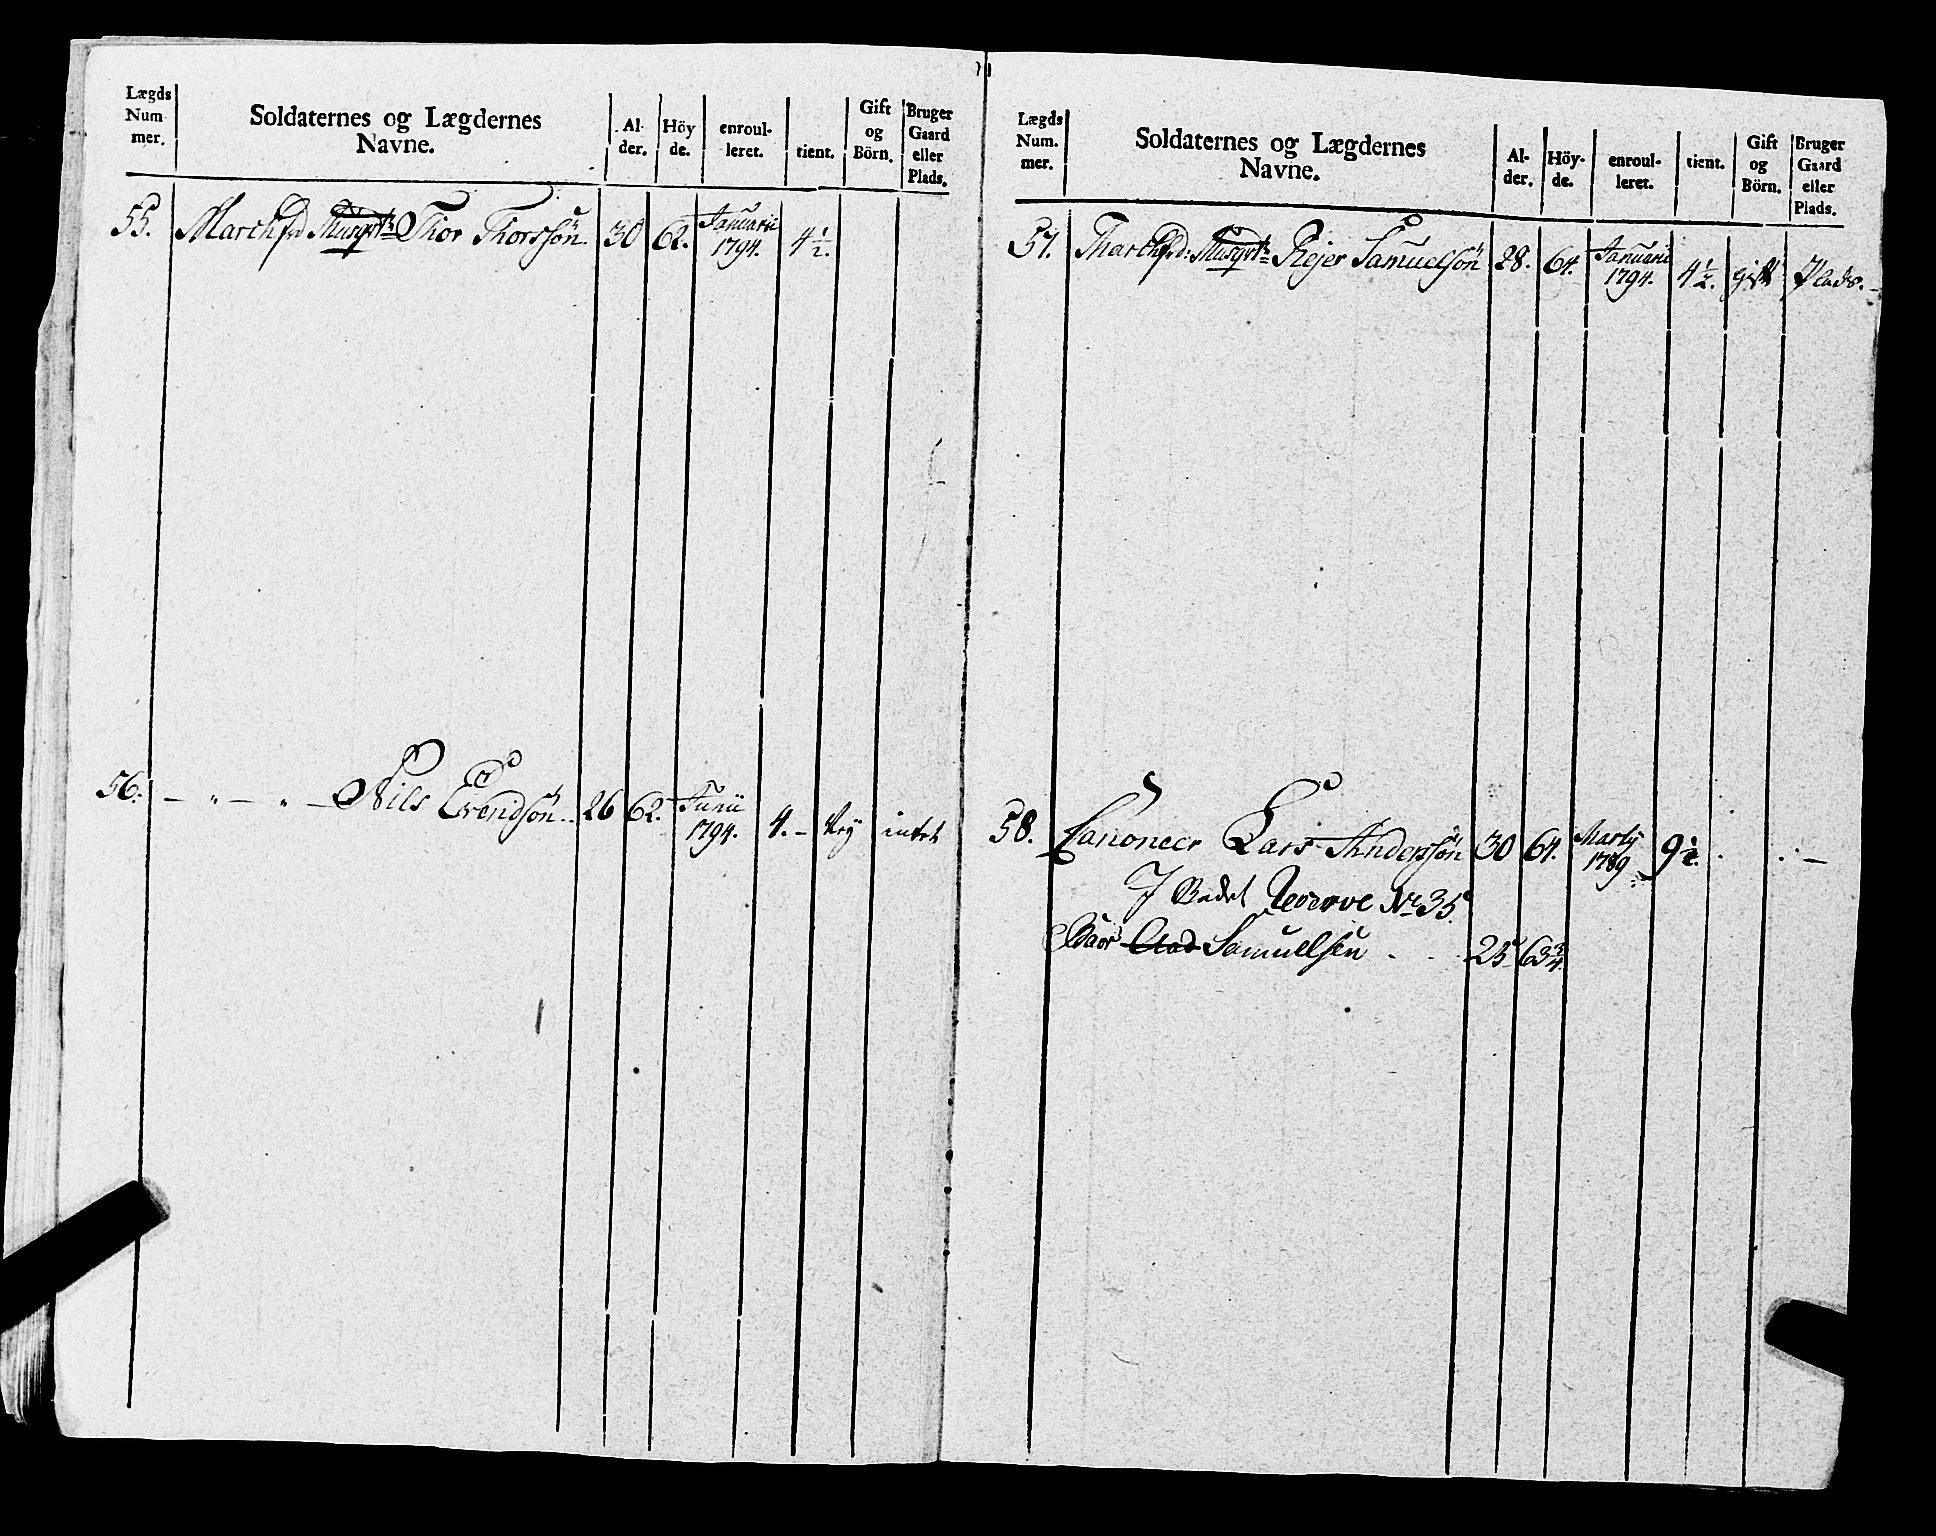 Lægds Num- mer.
Soldaternes og Lægdernes Navne.
Al- der.
Höy de.
enroul- leret.
tient.
Gift og Börn.
Bruger Gaard eller Plads.
55. Thor Thorssön. 30 62. Januarii 1794. 4 1/2.
56. — " — " — Nils Evendsön.. 26 62. Junii 1794. 4. — Ney intet
Lægds Num. mer.
Soldaternes og Lægdernes Navne.
Al- der.
Höy- de.
enroul- leret.
tient.
Gift og Börn.
Bruger Gaard eller Plads.
57. Rejer Samuelsön 28. 64. Januarii 1794. 4 1/2. gift Plads.
58. Canoneer Lars Anderssön 30 64. Marty 1789 9 1/2.
I Stedet Reserve Nr 35.
Samuelsen . . 25 63 3/4.